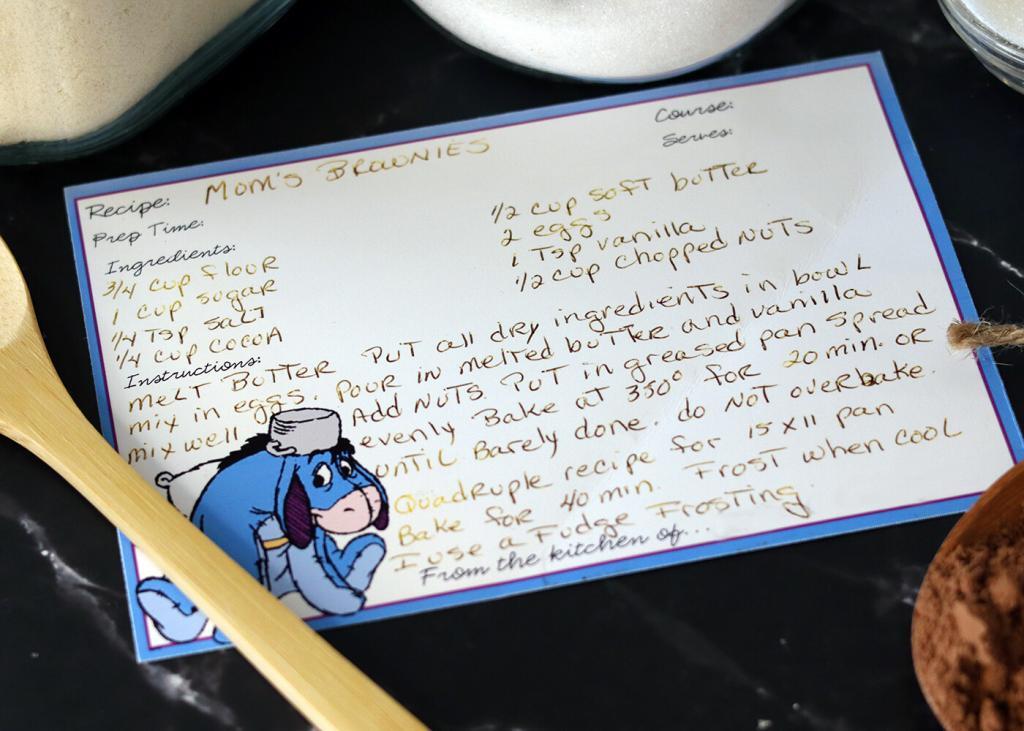 Recipe: MOM'S BROWNIES
Course:
Prep Time:
Serves:
Ingredients:
3/4 cup flour
1 cup sugar
1/4 Tsp salt
1/4 cup cocoa
1/2 cup soft butter
2 eggs
1 Tsp vanilla
1/2 cup chopped nuts
Instructions:
Melt butter Put all dry ingredients in bowl
mix in eggs. Pour in melted butter and vanilla
mix well Add nuts. Put in greased pan spread
evenly Bake at 350° for 20 min. or
until Barely done. do not overbake.
Quadruple recipe for 15 x 11 pan
Bake for 40 min. Frost when cool
I use a Fudge Frosting.
From the kitchen of...